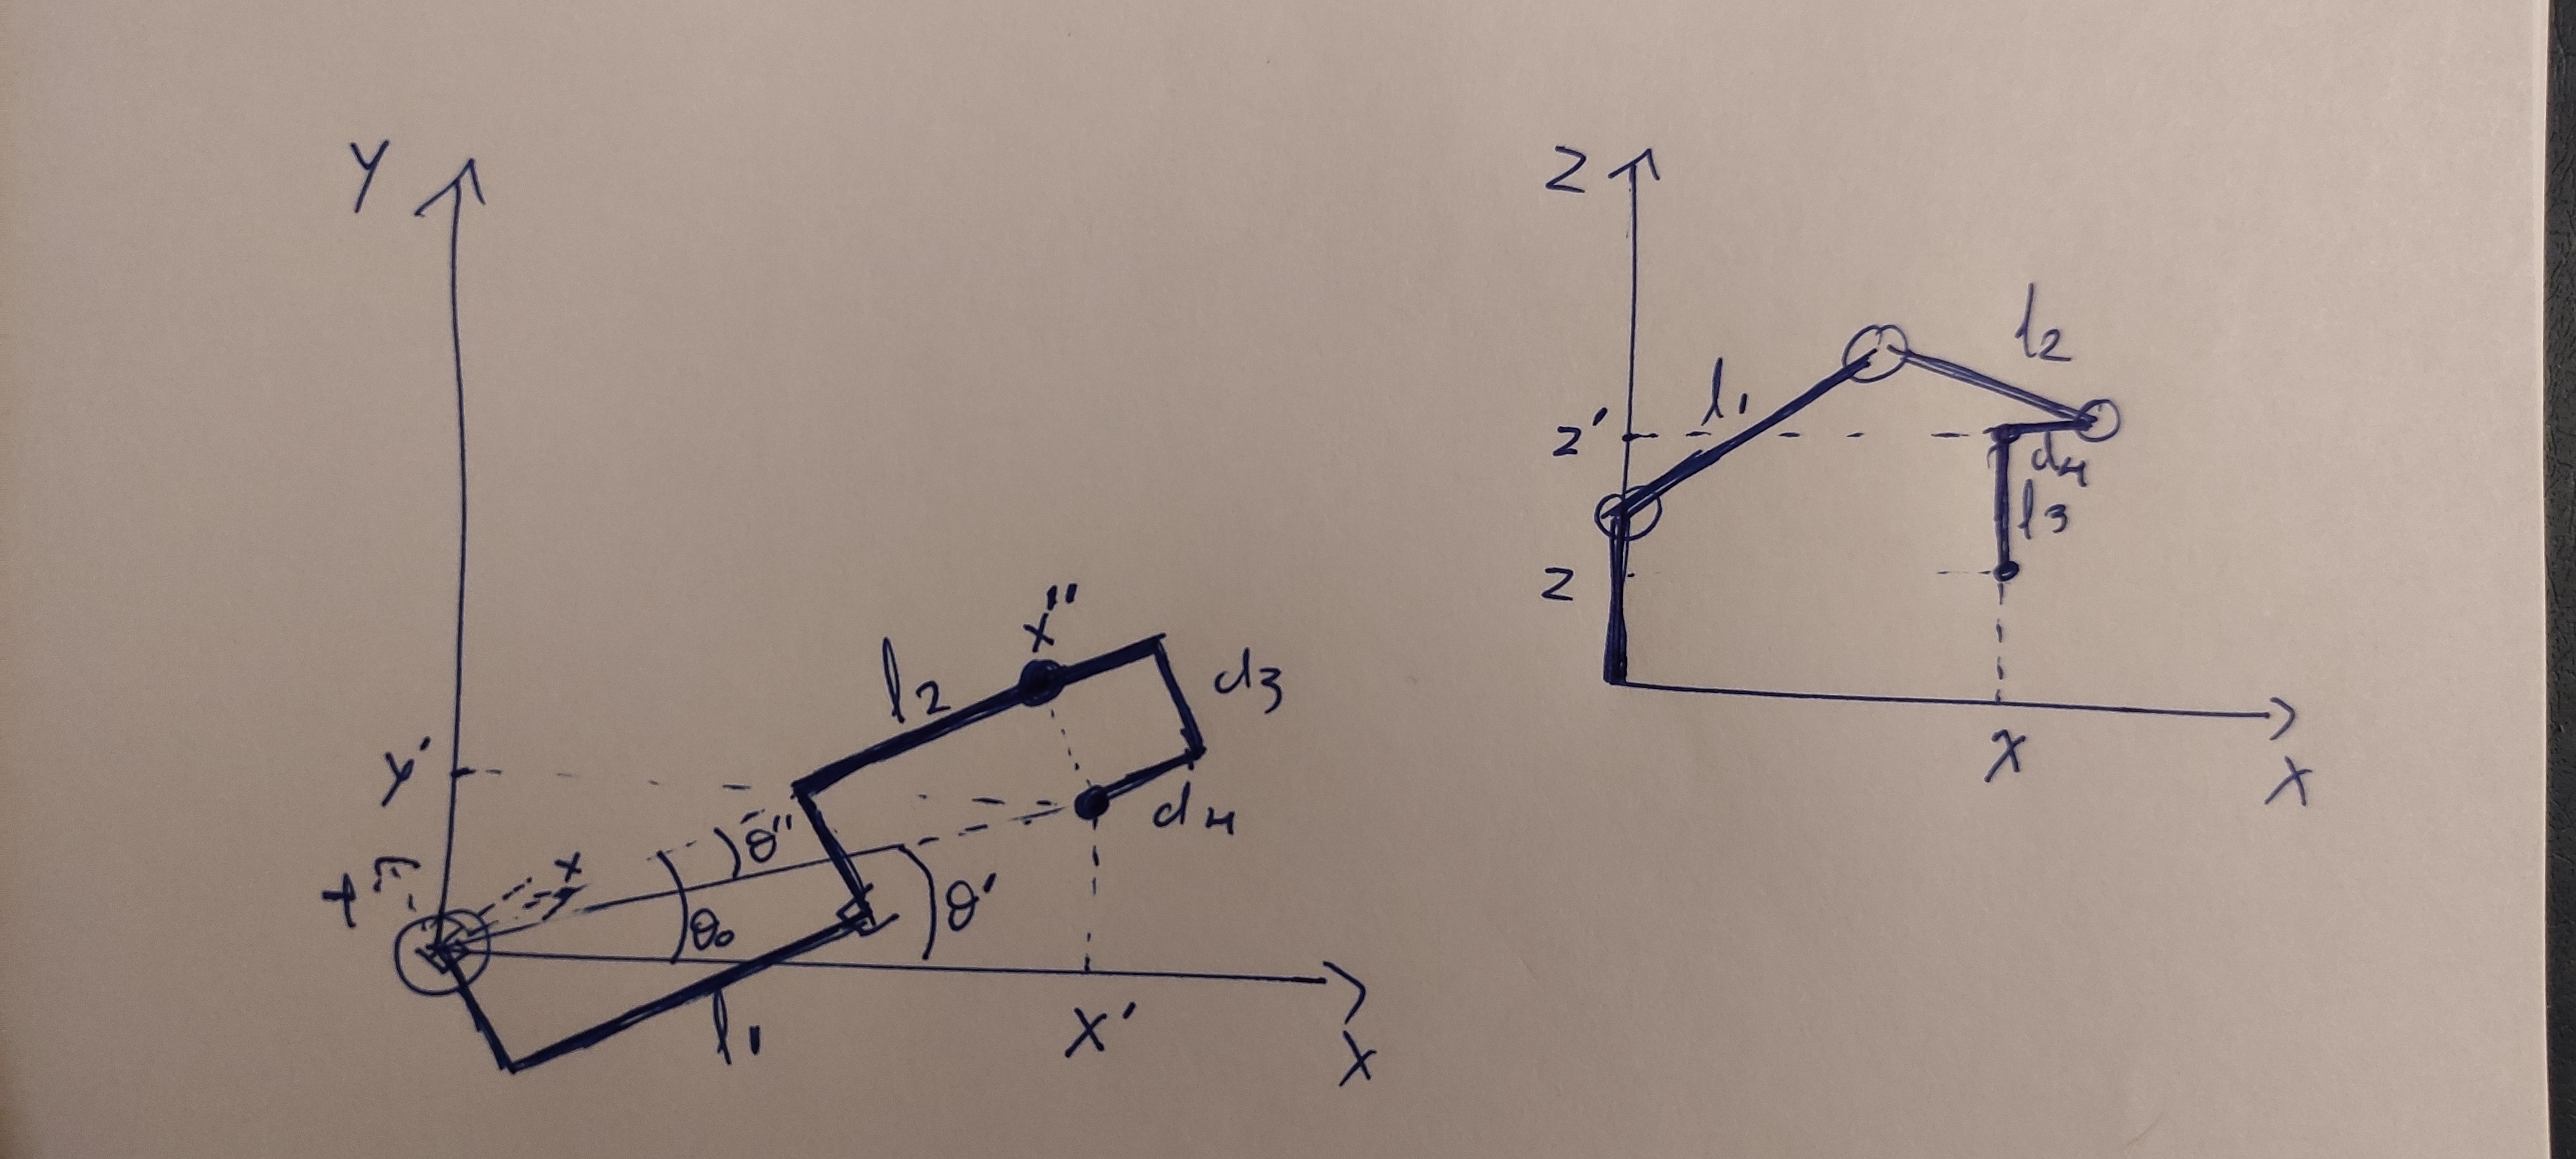 Y
x"
l2
d3
y'
d4
θ"
x
θ0
θ'
l1
x'
X
Z
l2
l1
z'
d4
l3
z
x
X